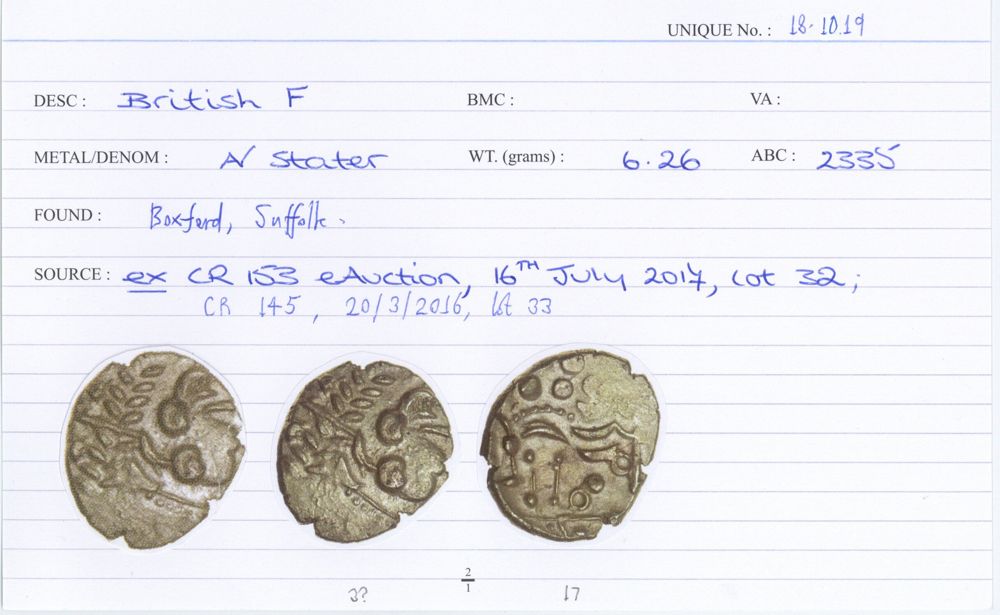 UNIQUE No. : 18.10.19
DESC : British F BMC : VA :
METAL/DENOM : AV Stater WT. (grams) : 6.26 ABC : 2335
FOUND : Boxford, Suffolk.
SOURCE : ex CR 153 eAuction, 16TH July 2017, Lot 32;
CR 145, 20/3/2016, lot 33
2
1
3? 17